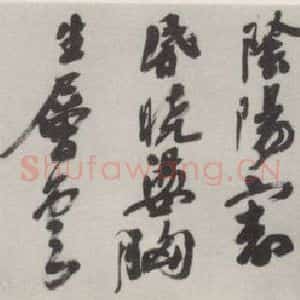 陰陽割
昏曉盪胸
生層雲
Shufawang.CN